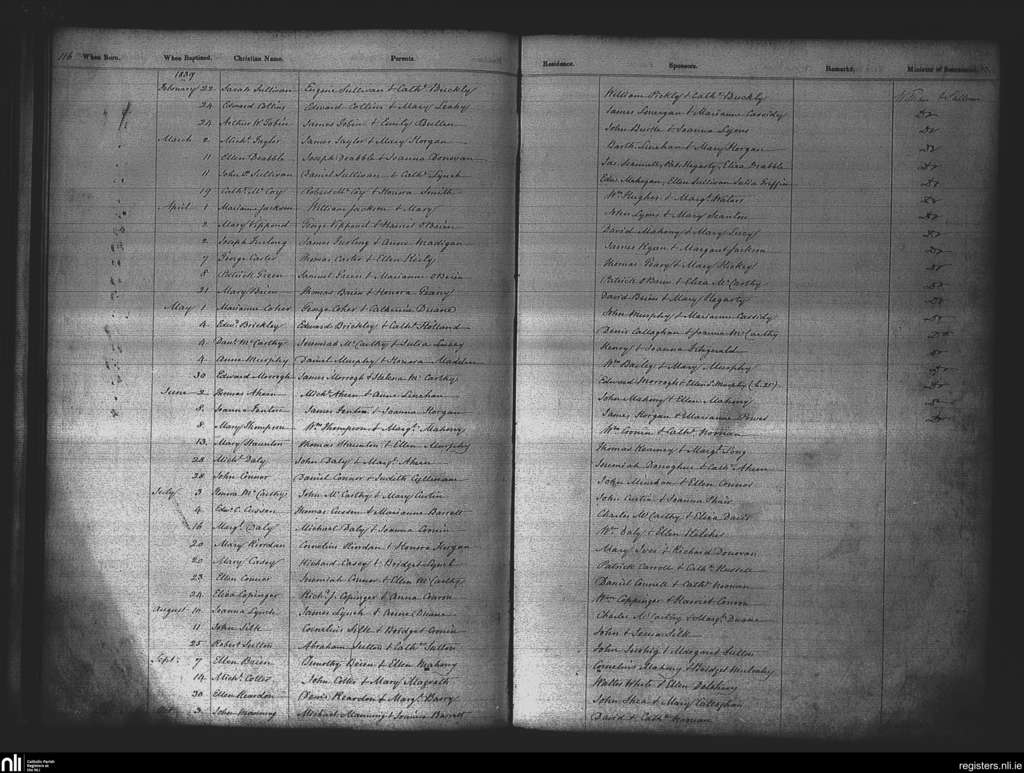 116 When Born. When Baptized. Christian Name. Parents. Residence. Sponsors. Remarks. Minister of Sacrament.
1839
February 22 Sarah Sullivan Eugene Sullivan & Cathe. Buckley William & Cathe. Buckley William
24 Edward Collins Edward Collins & Mary Leahy James & Marianne Cassidy Do
24 Arthur W. Tobin James Tobin & Emily Bullen John & Joanna Lyons Do
March 2 Michl. Taylor James Taylor & Mary Horgan Barth. Linehan & Mary Horgan Do
11 Ellen Drabble Joseph Drabble & Joanna Donovan Pat. Hegarty, Eliza Drabble Do
11 John Sullivan Daniel Sullivan & Cathe. Lynch Edw. Mehegan, Ellen Sullivan Julia Griffin Do
19 Cathe. McCoy Robert McCoy & Honora Smith Wm. Hughes & Margt. Do
April 1 Marianne Jackson William Jackson & Mary John Lyons & Mary Scanlon Do
2 Mary Vippond George Vippond & Harriet O'Brien David Mahony & Mary Lucy Do
2 Joseph Furlong James Furlong & Anne Madigan James Ryan & Margaret Jackson Do
7 George Carter Thomas Carter & Ellen Thomas Geary & Mary Hickey Do
8 Patrick Green Samuel Green & Marianne O'Brien Patrick O'Brien & Eliza McCarthy Do
21 Mary Brien Thomas Brien & Honora Geary David Brien & Mary Hegarty Do
May 1 Marianne Coher George Coher & Catherine Duane John Murphy & Marianne Cassidy Do
4 Edwd. Brickley Edward Brickley & Cathe. Holland Denis Callaghan & Joanna McCarthy Do
4 Danl. McCarthy Jeremiah McCarthy & Julia Henry & Joanna Fitzgerald Do
4 Anne Murphy Daniel Murphy & Honora Wm. Bailey & Mary Murphy Do
30 Edward Morrogh James Morrogh & Helena McCarthy Edward Morrogh & Ellen Murphy Do
June 2 Thomas Ahern Michl. Ahern & Anne Linehan John Mahony & Ellen Mahony Do
8 Joanna Fenton James Fenton & Joanna Horgan James Horgan & Marianne Do
8 Mary Thompson Wm. Thompson & Margt. Mahony Wm. Cronin & Cathe. Noonan
13 Mary Staunton Thomas Staunton & Ellen Murphy Thomas Kearney & Margt. Long
23 Michl. Daly John Daly & Margt. Ahern Jeremiah Donoghue & Cathe. Ahern
28 John Connor Daniel Connor & Judith John & Ellen Connor
July 3 McCarthy John McCarthy & Mary Curtin John Curtin & Joanna
4 Edwd. C. Cussen Thomas Cussen & Marianne Barrett Charles McCarthy & Eliza
16 Margt. Daly Michael Daly & Joanna Cronin Wm. Daly & Ellen Kelleher
20 Mary Riordan Cornelius Riordan & Honora Horgan Mary Ives & Richard Donovan
20 Mary Casey Richard Casey & Bridget Lynch Patrick Carroll & Cathe. Russell
23 Ellen Connor Jeremiah Connor & Ellen McCarthy Daniel Connell & Cathe. Noonan
24 Eliza Copinger Richd. J. Copinger & Anna Conron Wm. Coppinger & Harriet Conron
August 10 Joanna Lynch James Lynch & Anne Duane Charles McCarthy & Margt. Duane
11 John Silk Cornelius Silk & Bridget Cronin John & Silk
25 Robert Sutton Abraham Sutton & Cathe. Sutton John & Margaret Sutton
Sept. 7 Ellen Brien Timothy Brien & Ellen Mahony Cornelius Mahony & Bridget Mulcahy
14 Michl. Cotter John Cotter & Mary Magrath Walter White & Ellen
30 Ellen Reardon Denis Reardon & Margt. Barry John Shea & Mary Callaghan
3 John Manning Michael Manning & Joanna Barrett David & Cathe. Noonan
nli Catholic Parish Registers at the NLI registers.nli.ie